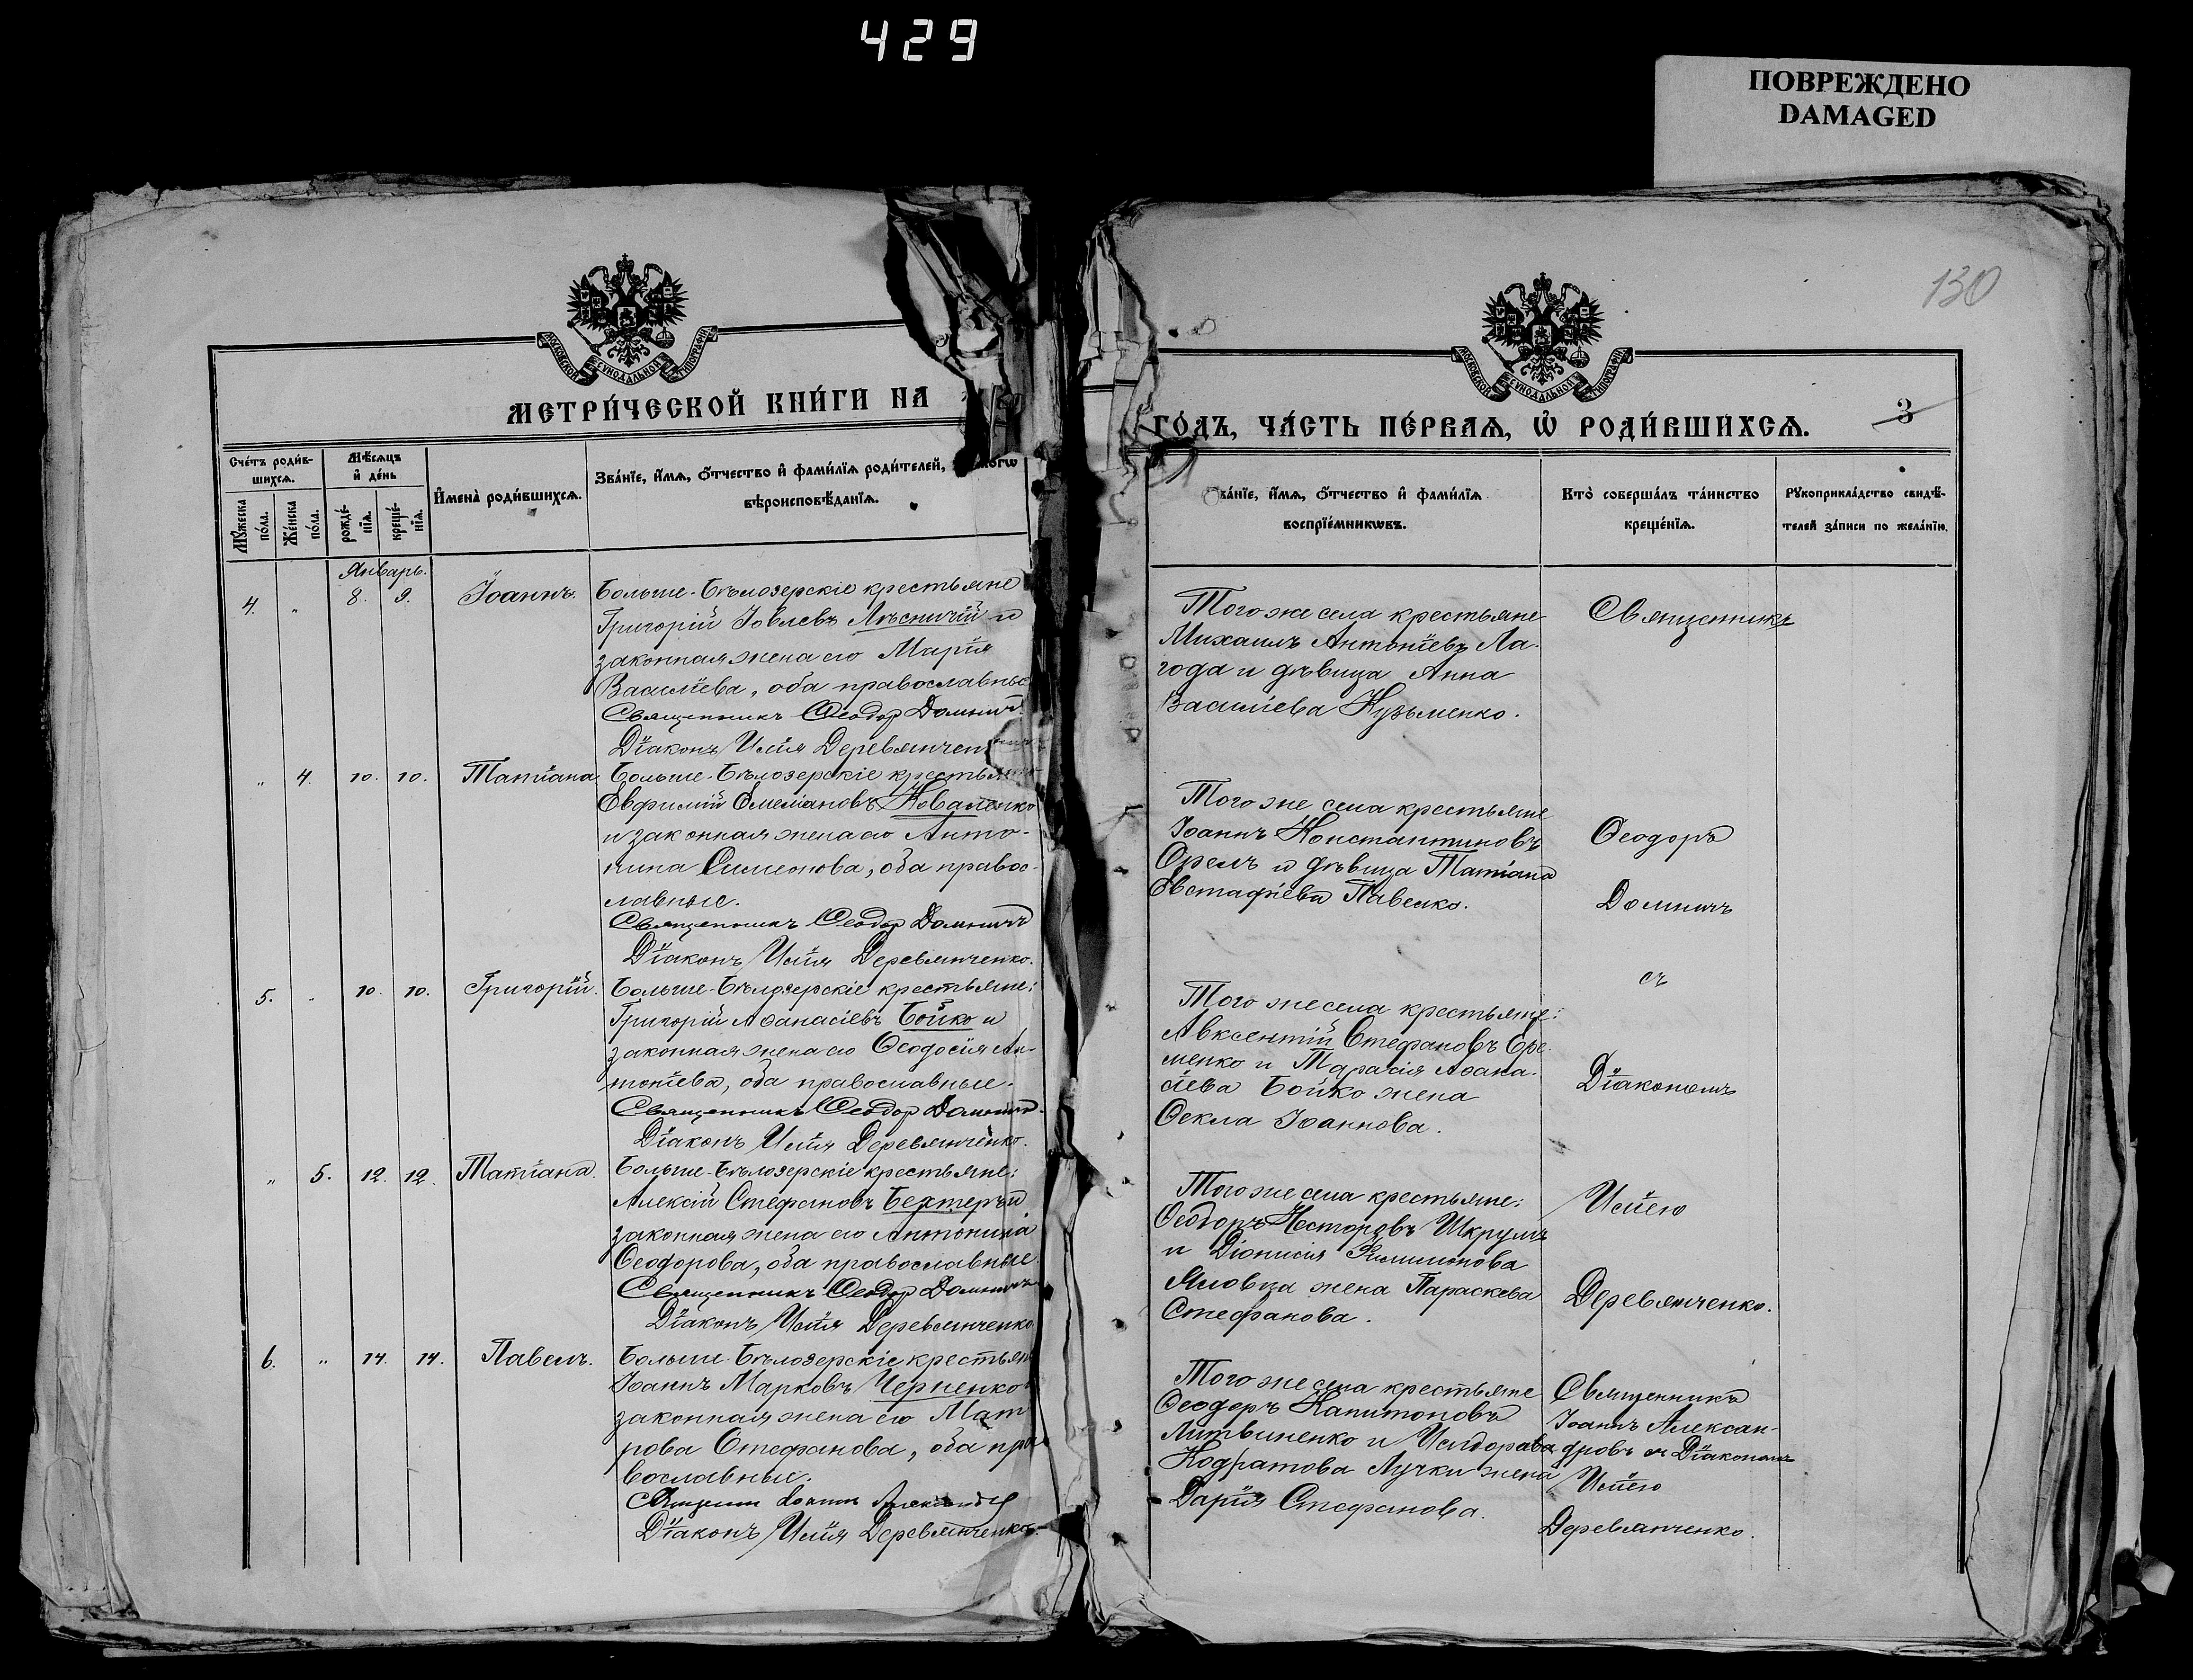 429
ПОВРЕЖДЕНО
DAMAGED
130
МОСКОВСКОЙ СУНОДАЛЬНОЙ ТИПОГРАФІИ
МОСКОВСКОЙ СУНОДАЛЬНОЙ ТИПОГРАФІИ
МЕТРИ́ЧЕСКОЙ КНИ́ГИ НА
ГО́ДЪ, ЧА́СТЬ ПЕ́РВАѦ, Ѡ҆ РОДИ́ВШИХСѦ.
3
Сче́тъ роди́в-
шихсѧ.
Мꙋ́жеска
по́ла.
Же́нска
по́ла.
Мѣ́сѧцъ
и҆ де́нь
рожде́-
нїѧ.
креще́-
нїѧ.
И҆мена̀ роди́вшихсѧ.
Зва́нїе, и҆́мѧ, ѻ҆́тчество и҆ фами́лїѧ роди́телей,
вѣроисповѣ́данїѧ.
Зва́нїе, и҆́мѧ, ѻ҆́тчество и҆ фами́лїѧ
воспрїе́мникѡвъ.
Кто̀ соверша́лъ та́инство
креще́нїѧ.
Рꙋкоприкла́дство свидѣ́-
телей за́писи по жела́нїю.
Январь.
4. " 8. 9. Іоаннъ.
Больше-Бѣлозерскіе крестьяне
Григорій Іовлевъ Лѣсничій и
законная жена его Марія
Василіева, оба православные
Священникъ Ѳеодор Домничъ
Діаконъ Илія Деревянчен
Того же села крестьяне
Михаилъ Антоніевъ Ла-
года и дѣвица Анна
Василіева Кузьменко.
" 4. 10. 10. Татіана
Больше-Бѣлозерскіе крестьяне
Евфимій Емеліановъ Коваленко
и законная жена его Анто-
нина Симеонова, оба правос-
лавные.
Священникъ Ѳеодор Домничъ
Діаконъ Илія Деревянченко.
Того же села крестьяне
Іоаннъ Константиновъ
Орелъ и дѣвица Татіана
Евстафіева Павенко.
5. " 10. 10. Григорій.
Больше-Бѣлозерскіе крестьяне:
Григорій Аѳанасіевъ Бойко и
законная жена его Ѳеодосія Ан-
тоніева, оба православные.
Священникъ Ѳеодор Домничъ
Діаконъ Илія Деревянченко.
Того же села крестьяне:
Авксентій Стефановъ Ере-
менко и Тарасія Аѳана-
сіева Бойко жена
Ѳекла Іоаннова.
" 5. 12. 12. Татіана.
Больше-Бѣлозерскіе крестьяне:
Алексій Стефановъ Бехтеръ и
законная жена его Антонина
Ѳеодорова, оба православные
Священникъ Ѳеодор Домничъ
Діаконъ Илія Деревянченко
Того же села крестьяне:
Ѳеодоръ Несторовъ Шкруль
и Діонисія Филимонова
Яловца жена Параскева
Стефанова.
6. " 14. 14. Павелъ.
Больше-Бѣлозерскіе крестьяне
Іоаннъ Марковъ Черненко
законная жена его Мат
рова Стефанова, оба пра
вославные.
Священник Іоанн Александров
Діаконъ Илія Деревянченко.
Того же села крестьяне
Ѳеодоръ Капитоновъ
Литвиненко и Исидора
Кодратова Лучки жена
Дарія Стефанова.
Священникъ
Ѳеодоръ
Домничъ
съ
Діакономъ
Иліею
Деревянченко.
Священникъ
Іоаннъ Алексан-
дровъ съ Діакономъ
Иліею
Деревянченко.